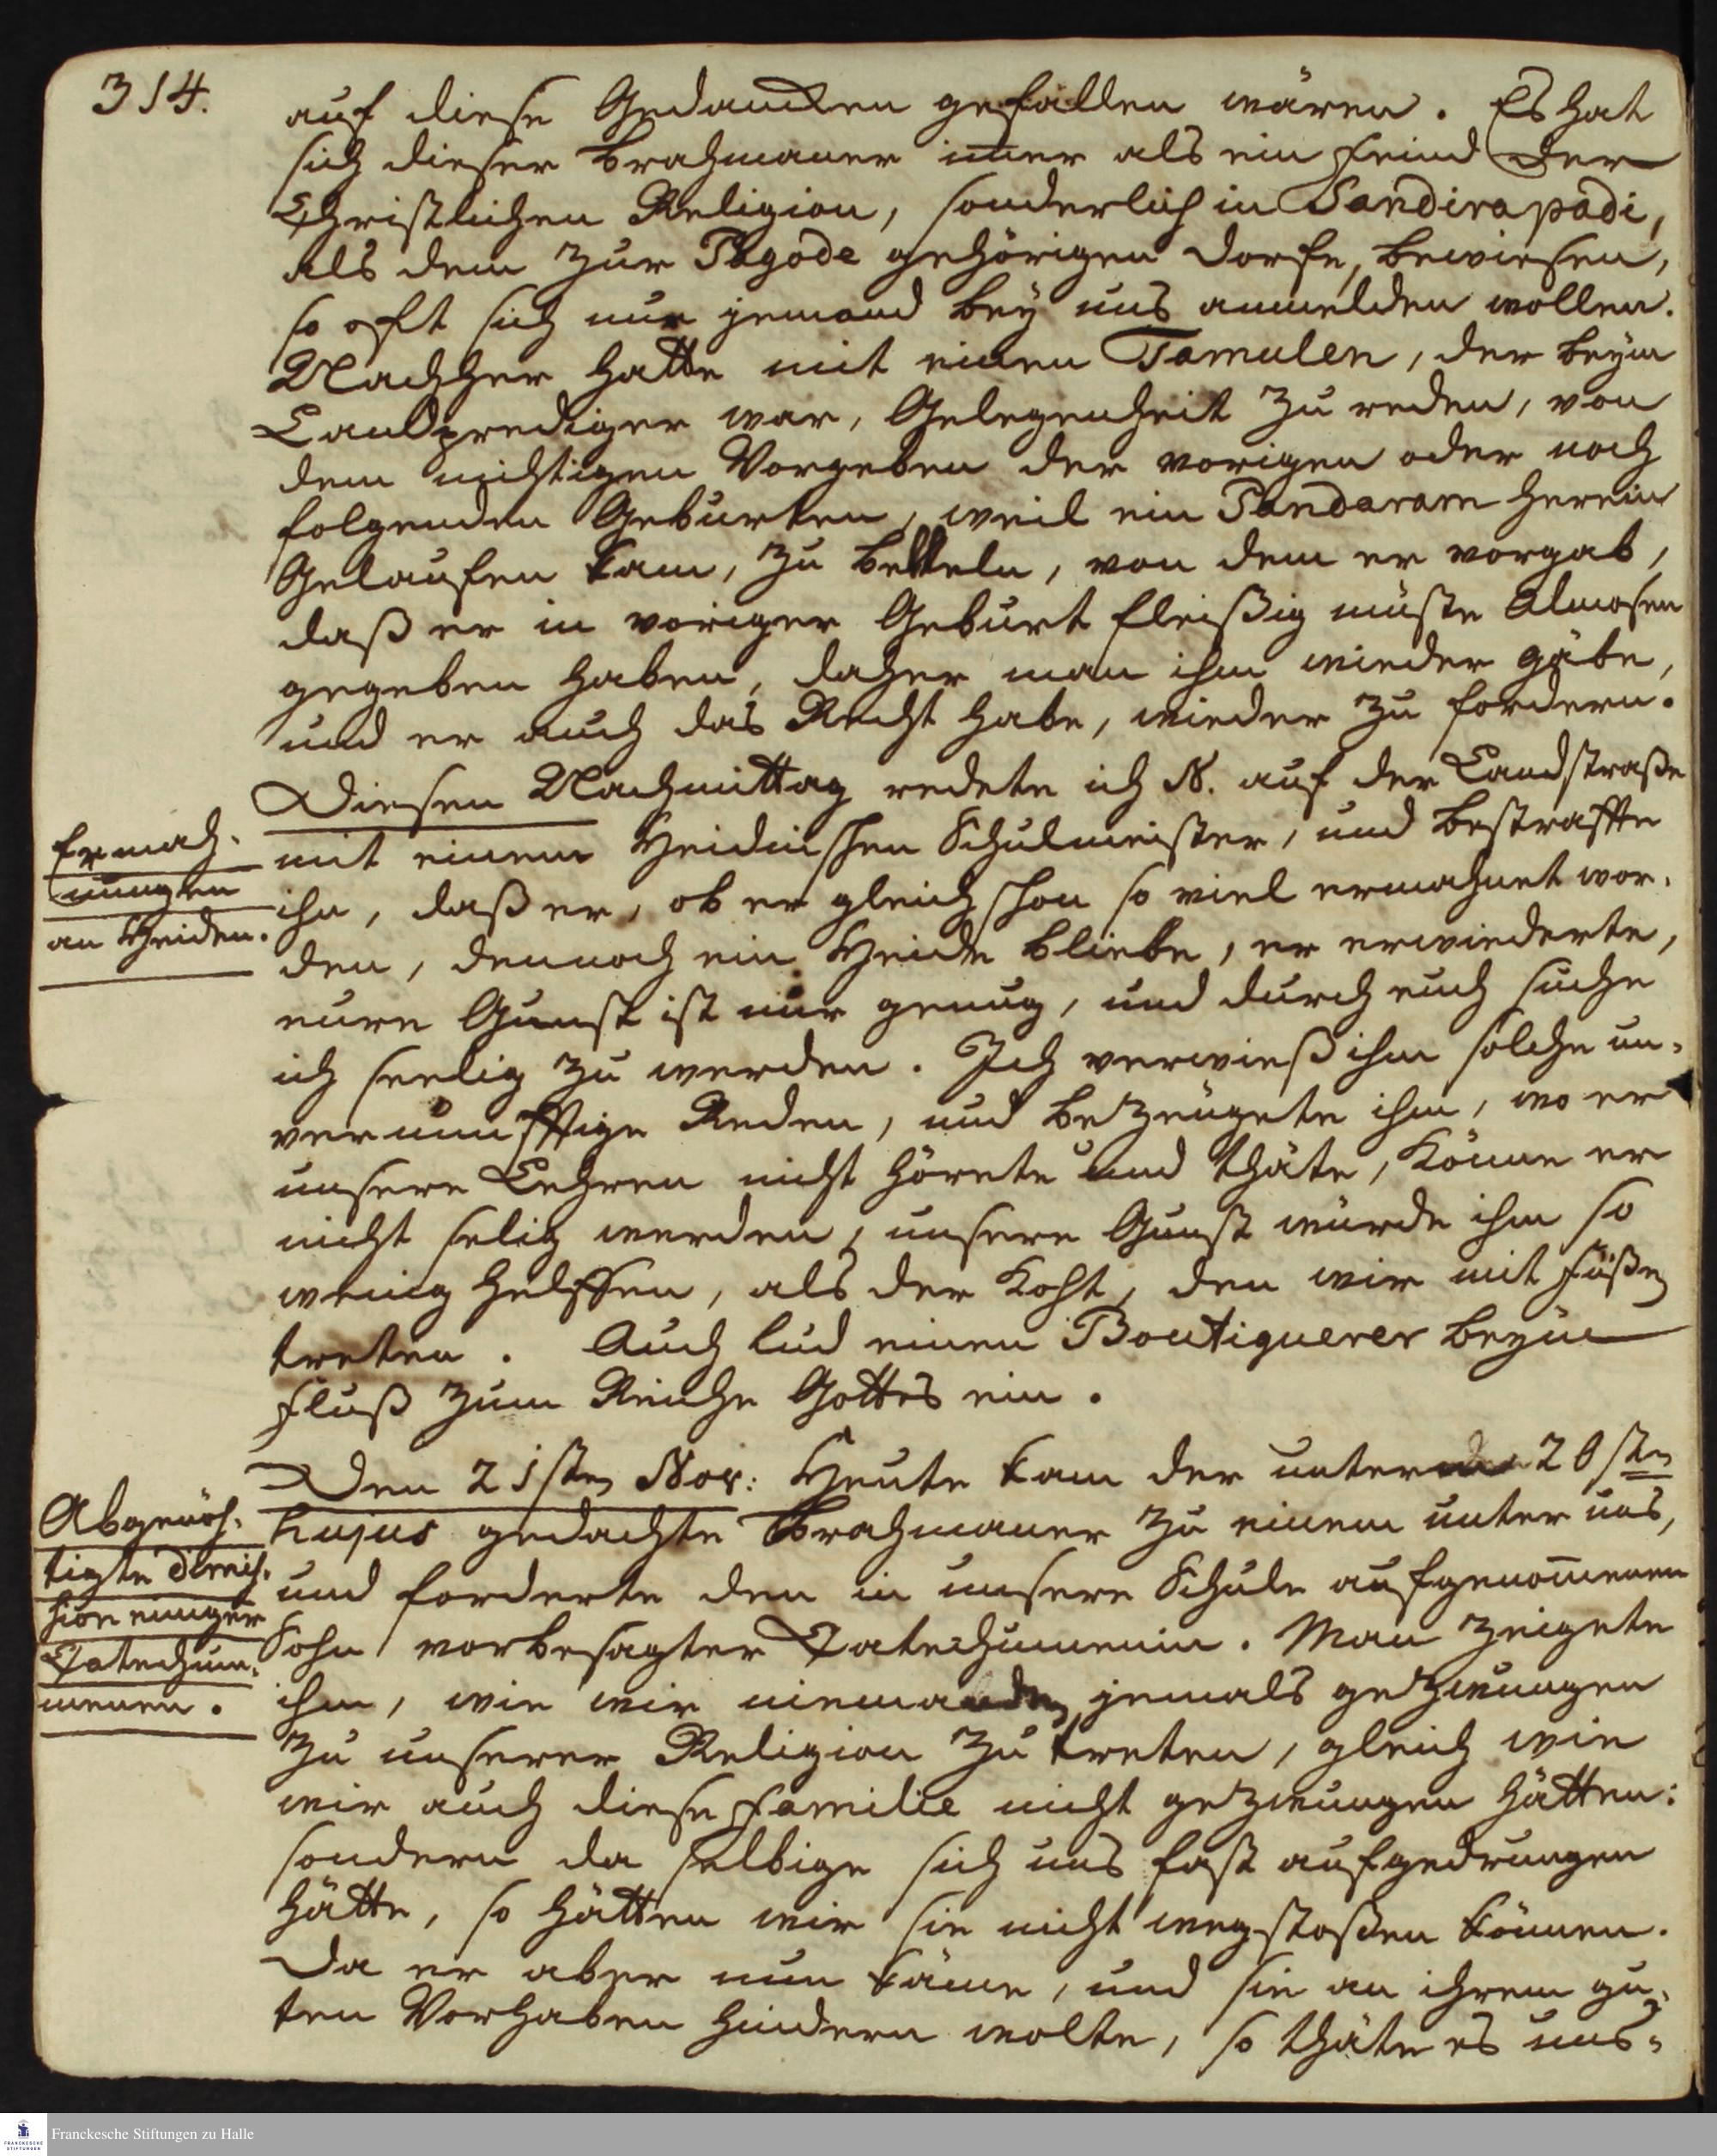 314.
auf diese Gedancken gefallen wären. Es hat
sich dieser Brahmaner im̅er als ein Feind der
Christlichen Religion, sonderlich in Sandirapadi,
als dem zur Pagode gehörigen Dorfe, bewiesen,
so oft sich nur jemand bey uns anmelden wollen.
Nachher hatte mit einem Tamulen, der beym
Landprediger war, Gelegenheit zu reden, von
dem nichtigen Vorgeben der vorigen oder noch
folgenden Geburten, weil ein Pandaram herein
Gelaufen kam, zu betteln, von dem er vorgab,
daß er in voriger Geburt fleißig müste Almosen
gegeben haben, daher man ihm wieder gäbe,
und er auch das Recht habe, wieder zu fordern.
Diesen Nachmittag redete ich N. auf der Landstraße
Ermah-
nungen
an Heiden.
mit einem Heidnischen Schulmeister, und bestraffte
ihn, daß er, ob er gleich schon so viel ermahnet wor-
den, dennoch ein Heide bliebe, er erwiederte,
eure Gunst ist mir genug, und durch euch suche
ich seelig zu werden. Ich verwieß ihm solche un-
vernünfftige Reden, und bezeugete ihm, wo er
unsere Lehren nicht hörete und thäte, könne er
nicht selig werden, unsere Gunst würde ihm so
wenig helffen, als der Koht, den wir mit Füßen
treten. Auch lud einen Boutiquerer beym
Fluß zum Reiche Gottes ein.
Den 21sten Nov: Heute kam der unterm 20sten
Abgenöh-
tigte Dimis-
sion einiger
Catechum-
menen.
hujus gedachte Brahmaner zu einem unter uns,
und forderte den in unsere Schule aufgenom̅enen
Sohn vorbesagter Catechumenin. Man zeigete
ihm, wie wir niemanden jemals gezwungen
zu unserer Religion zu treten, gleich wie
wir auch diese Familie nicht gezwungen hätten:
sondern da selbige sich uns fast aufgedrungen
hätte, so hätten wir sie nicht wegstoßen können.
Da er aber nun käme, und sie an ihrem gu-
ten Vorhaben hindern wolte, so thäte es uns-
Franckesche Stiftungen zu Halle